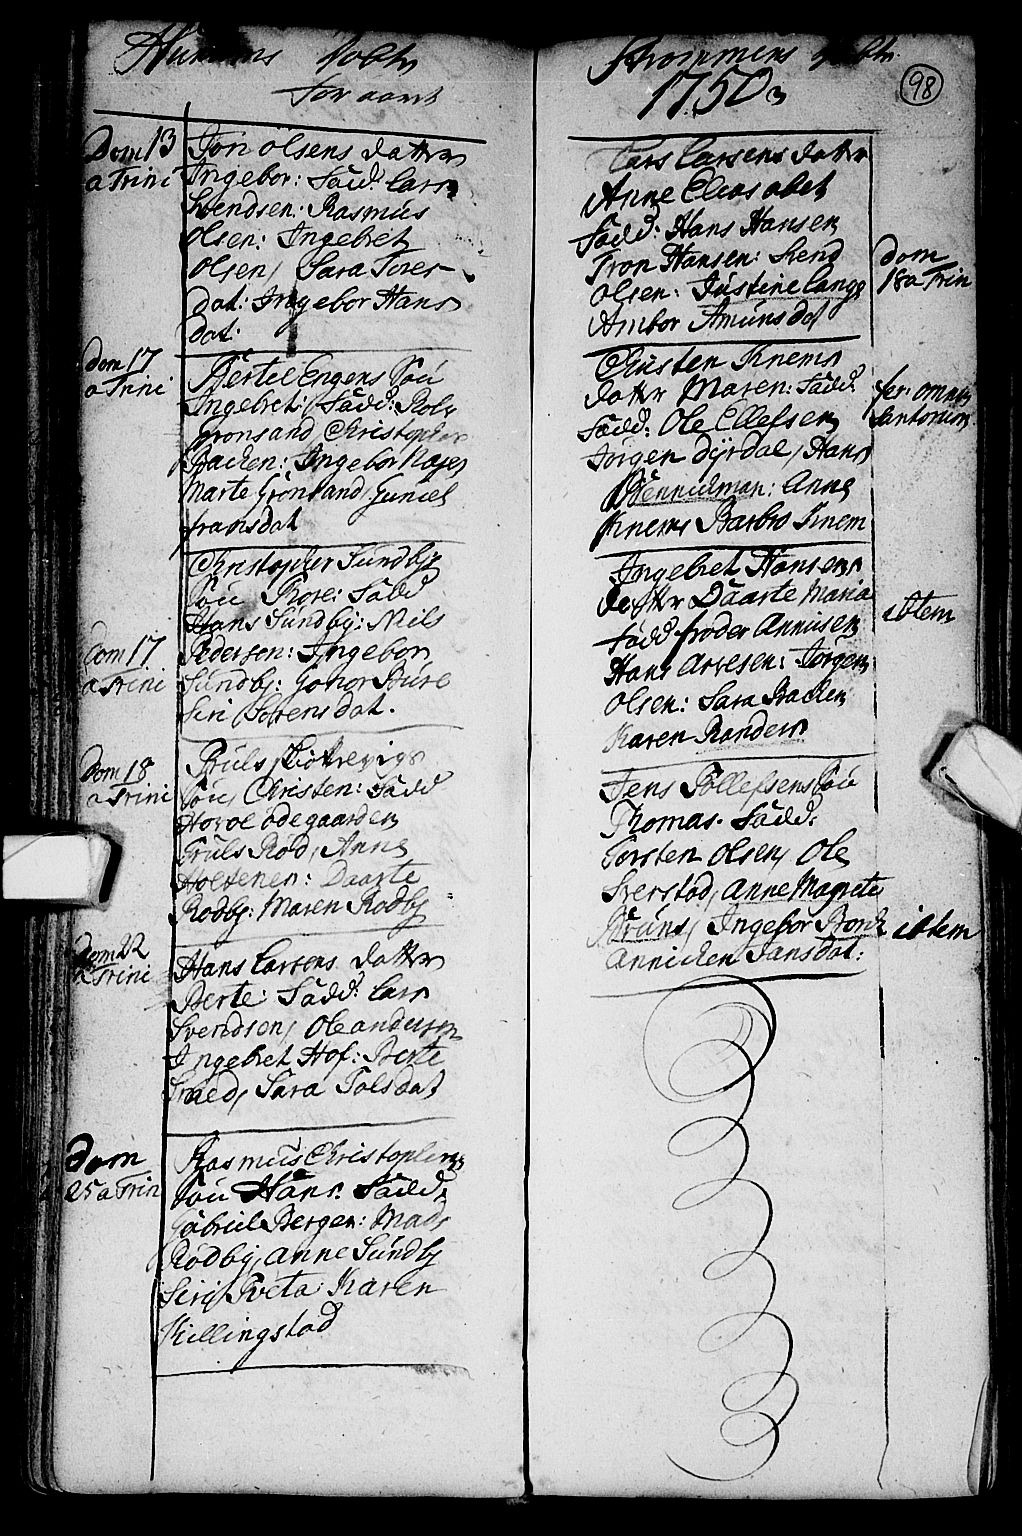 Hurums Døbte
for aaret
Dom 13
a Trini
Jøri Olsens datter
Ingebor: Fadd: Lars
Svendsen: Rasmus
Olsen: Ingebret
Olsen, Sara Tores
dat: Ingebor Hans
dat:
Dom 17
a Trini
Bertel Engens Søn
Ingebret: Fadd: Rolv
Grønsand Christopher
Backen: Ingebor
Marte Grønsand, Guniel
fransdat
Dom 17
a Trini
Christopher Sundbys
Søn Tore: Fadd
Hans Sundby: Niels
Pedersen: Ingebor
Sundby: Gonor Sture
Siri Sørensdat.
Dom 18
a Trini
Truls
Søn, Christen: Fadd
Hovol Ødegaarden
Truls Rød, Anne
Holtenen: Daarte
Rødby: Maren Rødby
Dom 22
a Trini
Hans Larsens datter
Berte: Fadd: Lars
Svendsen, Ole Andersen
Ingebret Hof: Berte
Sara Tolsdat
Dom
25 a Trin
Rasmus Christophers
Søn Hans. Fadd:
Gabriel Bergen: Mads
Rødby, Anne Sundby
Siri Tveta Karen
Killingstad
Strømmens Døbte
1750
98
Lars Larsens datter
Anne Elisabet
Fadd: Hans Hansen
Tron Hansen: Svend
Olsen: Justine Lange
Ambor Amunsdat
dom
18 a Trin
Christen Knems
datter Maren: Fadd:
Fadd: Ole Ellefsen
Jørgen Dyrdal, Hans
Wennicman: Anne
Knems Barbro Knem
fer: omnium
Santorum
Ingebret Hansens
datter Daarte Maria
Fadd Annusen
Hans Arvesen: Jørgen
Olsen: Sara Backen
Karen Randers
ibtem
Jens Tollefsens Søn
Thomas. Fadd:
Torsten Olsen, Ole
Sverstad, Anne Magrete
Bruns, Ingebor Borck
Annichen Jansdat:
ibtem